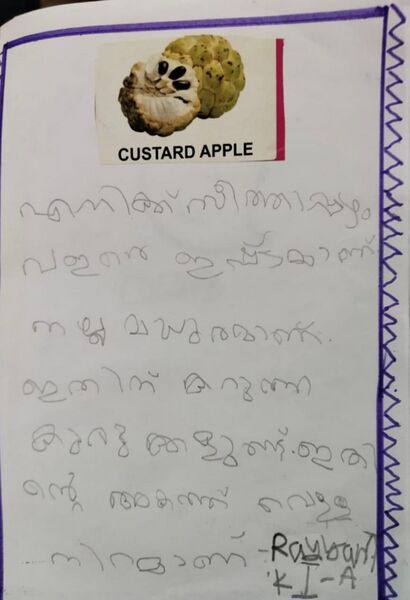 CUSTARD APPLE
എനിക്ക് സീത്തപ്പഴം
വളരെ ഇഷ്ടമാണ്
നല്ല മധുരമാണ്.
ഇതിന് കറുത്ത
കുരു ക്കളുണ്ട്. ഇതി
ന്റെ അകത്ത് വെള്ള
നിറമാണ് -
K I - A